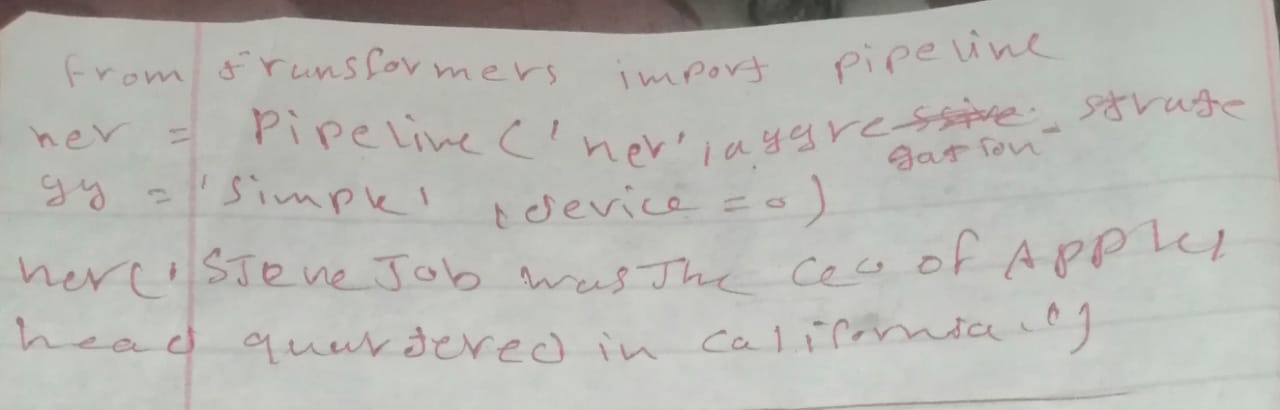 from transformers import pipeline
ner = pipeline('ner', aggregation_strate
gy = 'simple', device = 0)
ner('Steve Job was The Ceo of Apple,
head quartered in California.')